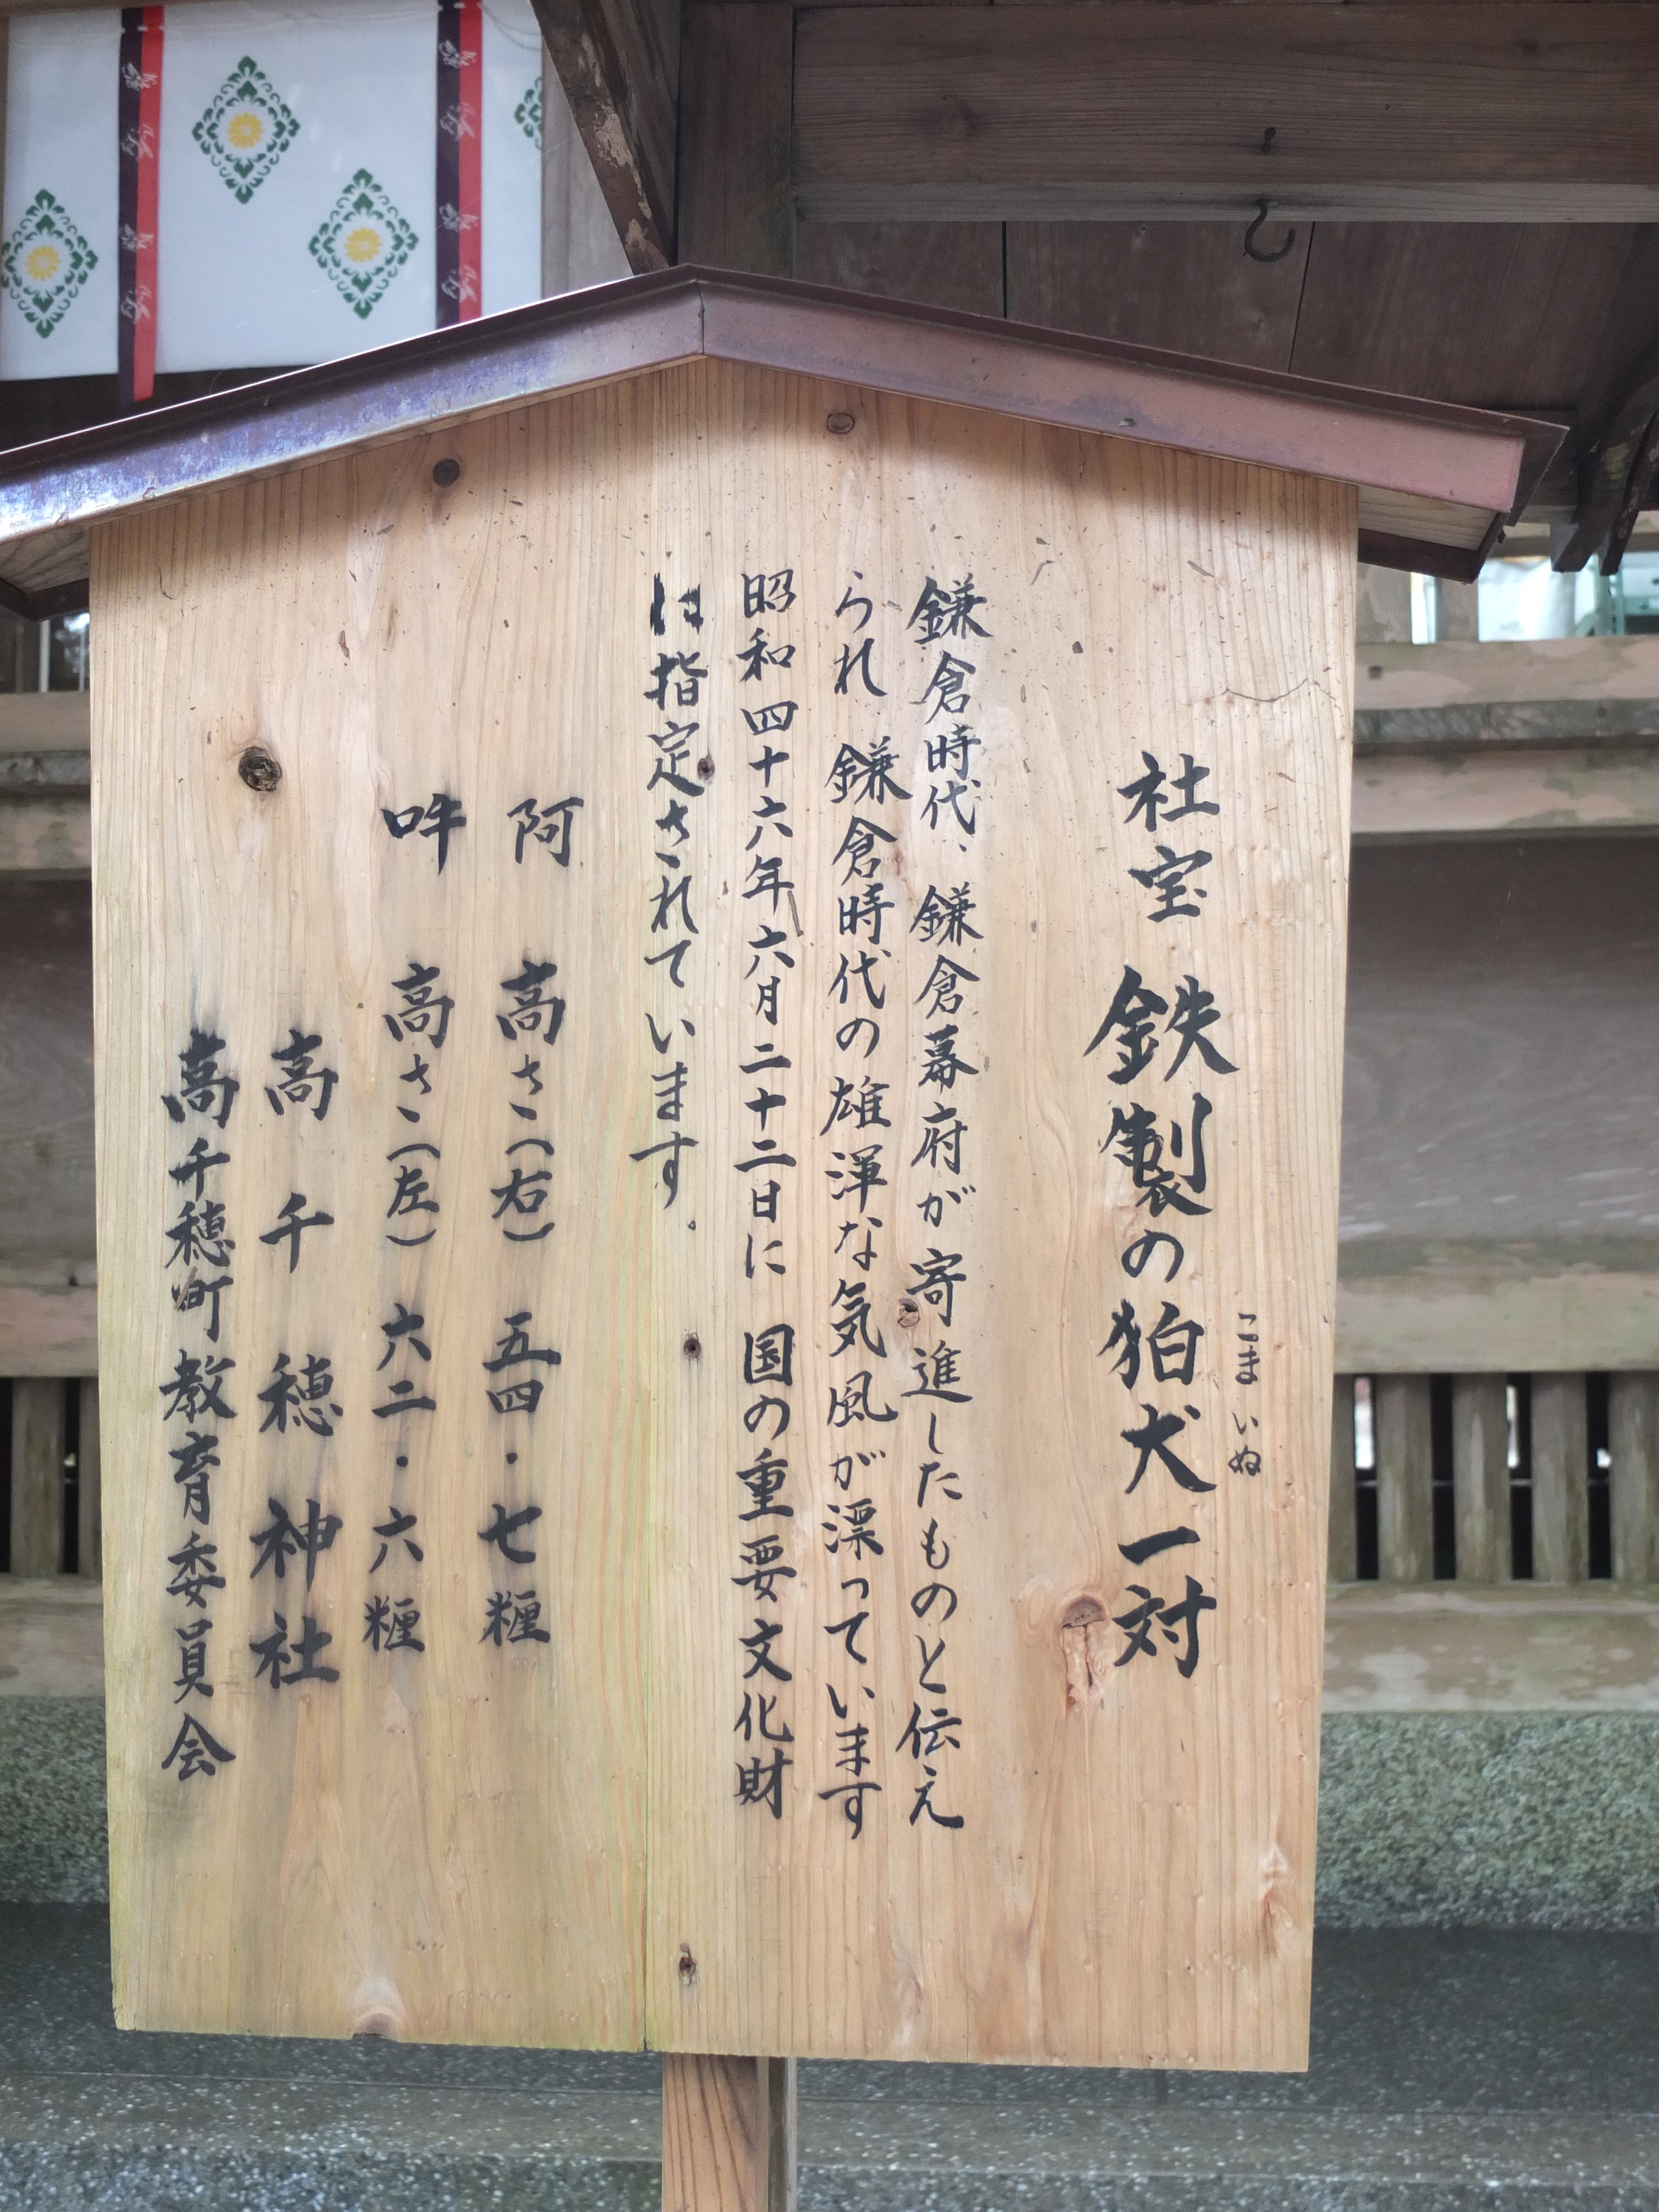 社宝 鉄製の狛犬一対
こまいぬ
鎌倉時代、鎌倉幕府が寄進したものと伝え
られ 鎌倉時代の雄渾な気風が漂っています
昭和四十六年六月二十二日に 国の重要文化財
は指定されています。
阿 高さ(右) 五四・七糎
吽 高さ(左) 六二・六糎
高千穂神社
高千穂町教育委員会